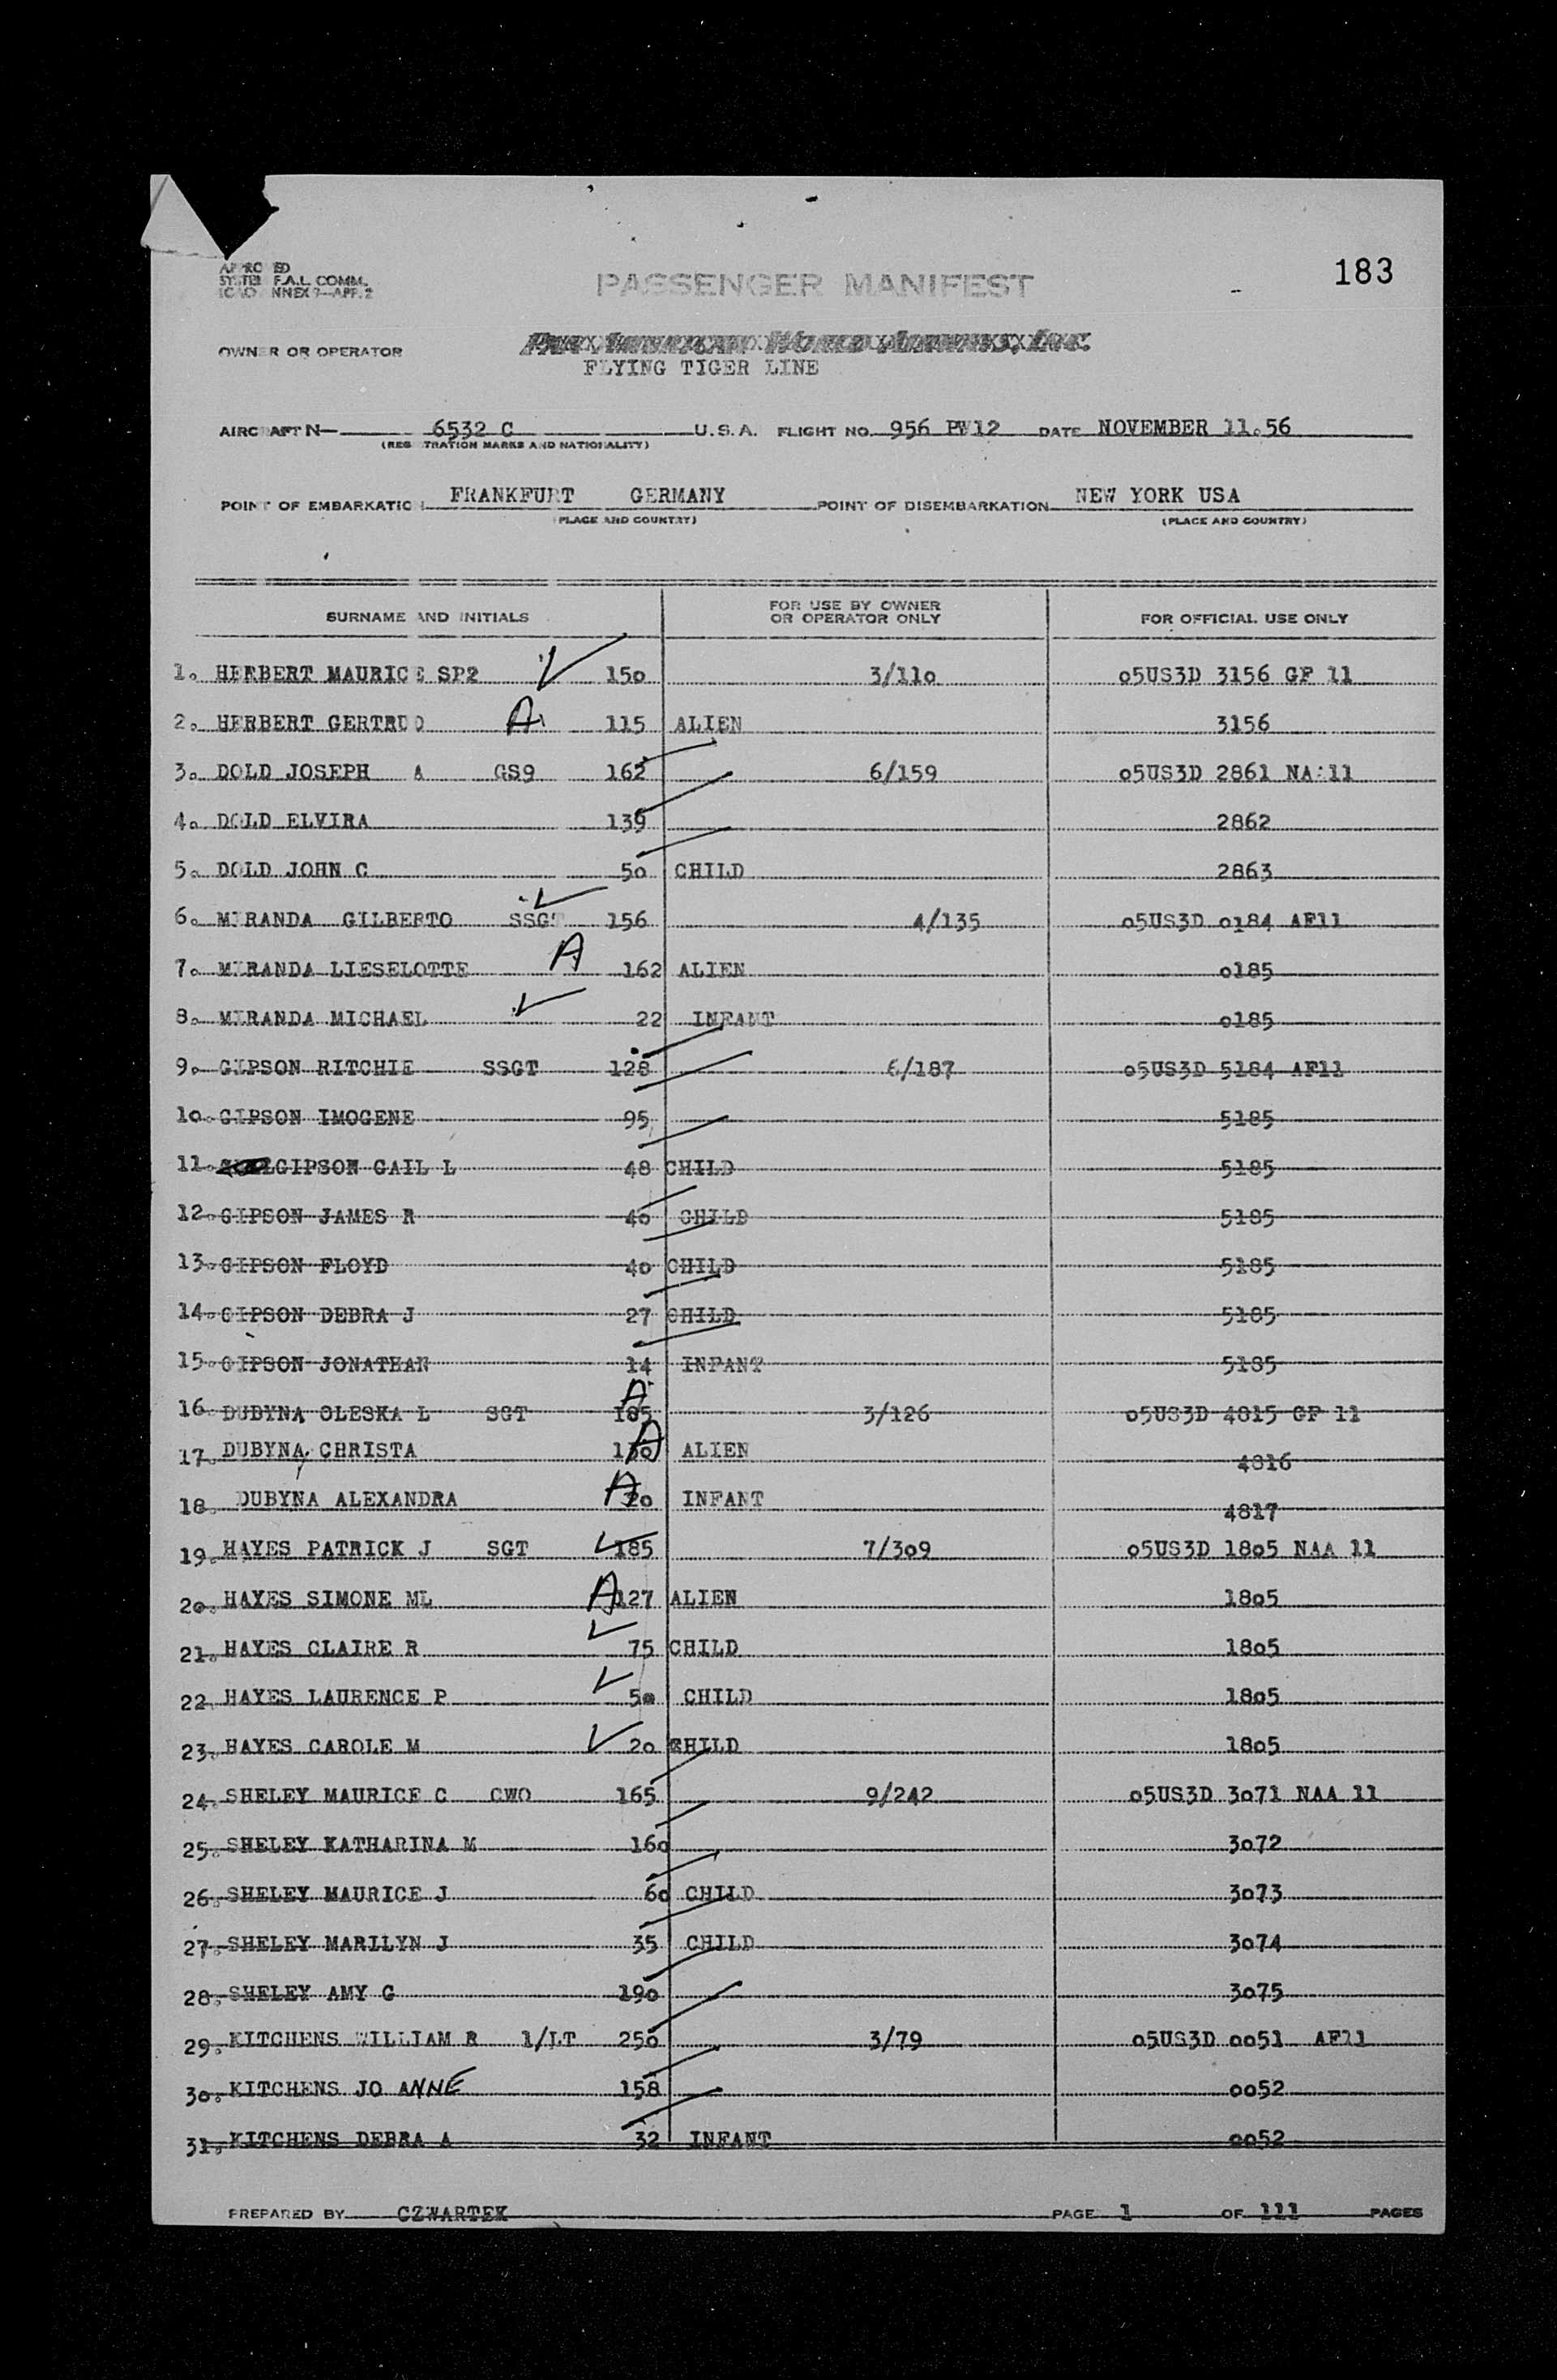 183
APPROVED
SYSTEM F.A.L. COMM.
ICAO ANNEX 9—APP. 2
PASSENGER MANIFEST
OWNER OR OPERATOR PAN AMERICAN WORLD AIRWAYS, INC.
FLYING TIGER LINE
AIRCRAFT N— 6532 C U.S.A. FLIGHT NO. 956 PW12 DATE NOVEMBER 11.56
(REGISTRATION MARKS AND NATIONALITY)
POINT OF EMBARKATION FRANKFURT GERMANY POINT OF DISEMBARKATION NEW YORK USA
(PLACE AND COUNTRY) (PLACE AND COUNTRY)
SURNAME AND INITIALS FOR USE BY OWNER OR OPERATOR ONLY FOR OFFICIAL USE ONLY
1. HERBERT MAURICE SP2 ✓ 150 3/110 05US3D 3156 GF 11
2. HERBERT GERTRUD A 115 ALIEN 3156
3. DOLD JOSEPH A GS9 162 6/159 05US3D 2861 NA 11
4. DOLD ELVIRA 139 2862
5. DOLD JOHN C 50 CHILD 2863
6. MIRANDA GILBERTO SSGT ✓ 156 4/135 05US3D 0184 AF11
7. MIRANDA LIESELOTTE A 162 ALIEN 0185
8. MIRANDA MICHAEL ✓ 22 INFANT 0185
9. GIPSON RITCHIE SSGT 128 6/187 05US3D 5184 AF11
10. GIPSON IMOGENE 95 5185
11. GIPSON GAIL L 48 CHILD 5185
12. GIPSON JAMES R 40 CHILD 5185
13. GIPSON FLOYD 40 CHILD 5185
14. GIPSON DEBRA J 27 CHILD 5185
15. GIPSON JONATHAN 14 INFANT 5185
16. DUBYNA OLESKA L SGT A 185 3/126 05US3D 4815 GF 11
17. DUBYNA CHRISTA A 130 ALIEN 4816
18. DUBYNA ALEXANDRA A 20 INFANT 4817
19. HAYES PATRICK J SGT ✓ 185 7/309 05US3D 1805 NAA 11
20. HAYES SIMONE ML A 127 ALIEN 1805
21. HAYES CLAIRE R ✓ 75 CHILD 1805
22. HAYES LAURENCE P ✓ 50 CHILD 1805
23. HAYES CAROLE M ✓ 20 CHILD 1805
24. SHELEY MAURICE C CWO 165 9/242 05US3D 3071 NAA 11
25. SHELEY KATHARINA M 160 3072
26. SHELEY MAURICE J 60 CHILD 3073
27. SHELEY MARILYN J 35 CHILD 3074
28. SHELEY AMY G 190 3075
29. KITCHENS WILLIAM R 1/LT 250 3/79 05US3D 0051 AF11
30. KITCHENS JO ANNE 158 0052
31. KITCHENS DEBRA A 32 INFANT 0052
PREPARED BY CZWARTEK PAGE 1 OF 111 PAGES